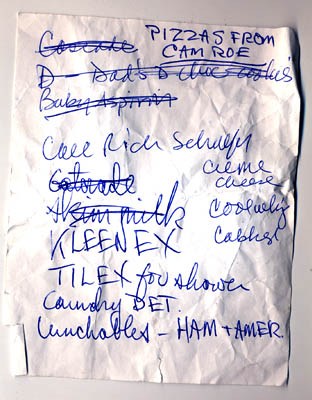 Cascade
PIZZAS FROM
CAM ROE
D - Dad's D
Baby Aspirin
Call Rich
Gatorade
creme
cheese
Skim milk
Coolwhip
KLEENEX
TILEX for shower
Laundry DET.
Lunchables - HAM + AMER.